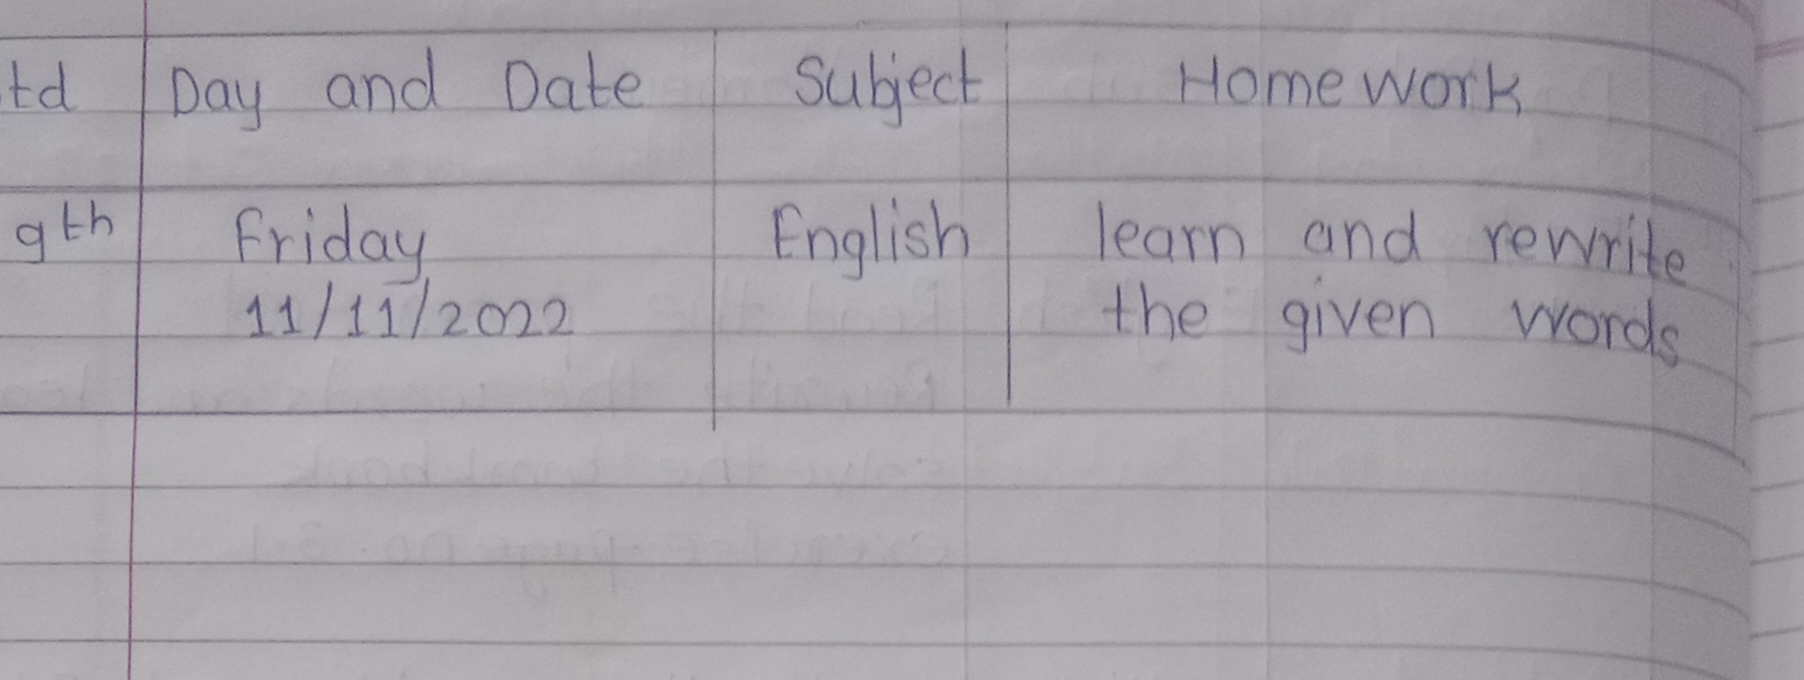 td Day and Date Subject Homework
9th Friday English learn and rewrite
11/11/2022 the given words